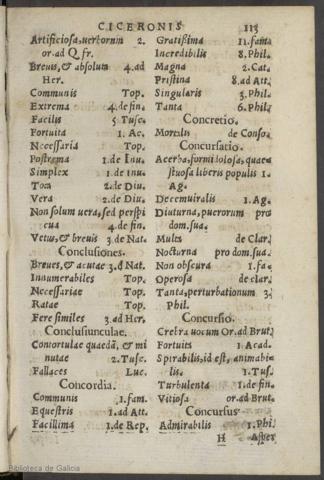 CICERONIS 113
Artificiosa, uersborum 2.
or. ad Q. fr.
Breuis, & absoluta 4. ad
Her.
Communis Top.
Extrema 4. de fin.
Facilis 5. Tusc.
Fortuita 1. Ac.
Necessaria Top.
Postrema 1. de Inu.
Simplex 1. de Inu.
Tota 2. de Diu.
Vera 2. de Diu.
Non solum uera, sed perspi
cua 4. de fin.
Vetus, & breuis 3. de Nat.
Conclusiones.
Breues, & acutae 3. d Nat.
Innumerabiles Top.
Necessariae Top.
Ratae Top.
Fere similes 3. ad Her.
Conclusiunculae.
Contortulae quaedā, & mi
nutae 2. Tusc.
Fallaces Luc.
Concordia.
Communis 1. fam.
Equestris 1. ad Att.
Facillima 1. de Rep.
Gratißima 11. fam.
Incredibilis 8. Phil.
Magna 2. Cat.
Pristina 8. ad Att.
Singularis 3. Phil.
Tanta 6. Phil.
Concretio.
Mortalis de Conso.
Concursatio.
Acerba, formidolosa, quae
stuosa liberis populi 1.
Ag.
Decemuiralis 1. Ag.
Diuturna, puerorum pro
dom. sua.
Multa de Clar.
Nocturna pro dom. sua.
Non obscura 1. fa.
Operosa de clar.
Tanta, perturbationum 3.
Phil.
Concursio.
Crebra uocum Or. ad Brut.
Fortuita 1. Acad.
Spirabilis, id est, animabi
lis. 1. Tus.
Turbulenta 1. de fin.
Vitiosa or. ad Brut.
Concursus
Admirabilis 1. Phi.
H Asper
Biblioteca de Galicia